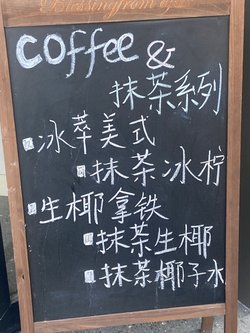 Blessing from
coffee &
抹茶系列
冰萃美式
抹茶冰柠
生椰拿铁
抹茶生椰
抹茶椰子水